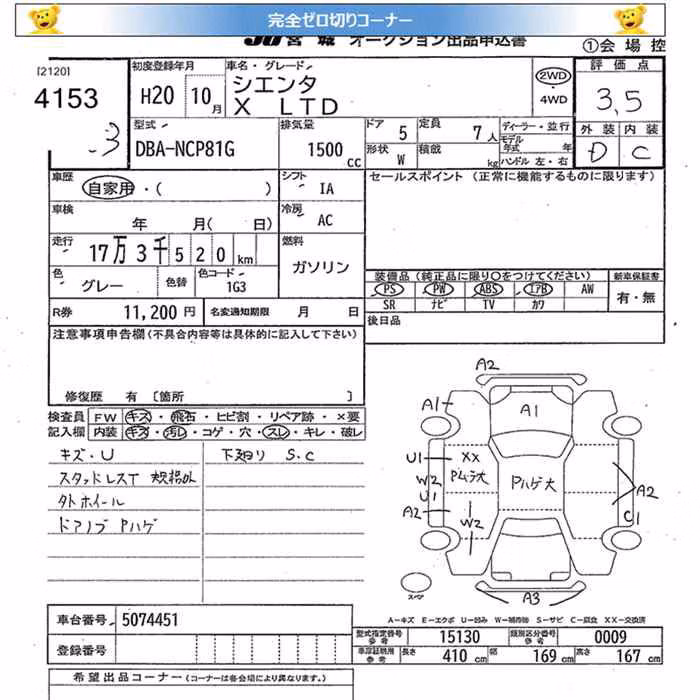 完全ゼロ切りコーナー
JU宮城 オークション出品申込書
①会場控
[2120]
4153
初度登録年月
H20 10月
車名・グレード
シエンタ
X LTD
2WD
・4WD
評価点
3,5
外装 内装
D C
.3
型式
DBA-NCP81G
排気量
1500cc
ドア 5
定員 7人
形状 W
積載 kg
ディーラー・並行
モデル年式 年
ハンドル 左・右
車歴
自家用・( )
シフト IA
セールスポイント (正常に機能するものに限ります)
車検
年 月( 日)
冷房 AC
走行
17万3千520km
燃料
ガソリン
色 グレー
色替
色コード 1G3
装備品(純正品に限り○をつけてください)
PS PW ABS エアB AW
SR ナビ TV カワ
新車保証書
有・無
R券 11,200円
名変通知期限 月 日
後日品
注意事項申告欄(不具合内容等は具体的に記入して下さい)
修復歴 有 [箇所 ]
検査員 FW キズ・飛石・ヒビ割・リペア跡・×要
記入欄 内装 キズ・汚レ・コゲ・穴・スレ・キレ・破レ
キズ・U
下廻り S.C
スタッドレスT 規格外
タトホイール
ドアノブ Pハゲ
A2
A1
A1
U1
XX
W2
Pムラ大
U1
Pハゲ大
A2
W2
A2
C1
A3
スペア
A-キズ E-エクボ U-凹み W-補修跡 S-サビ C-腐食 XX-交換済
車台番号 5074451
登録番号
型式指定番号参考 15130
類別区分番号参考 0009
車庫証明用参考 長さ 410cm 幅 169cm 高さ 167cm
希望出品コーナー(コーナーは各会場により異なります。)